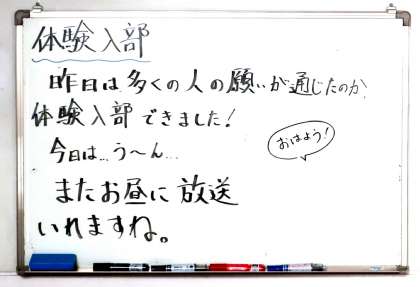 体験入部
昨日は多くの人の願いが通じたのか
体験入部できました!
今日は…う〜ん…
おはよう!
またお昼に放送
いれますね。